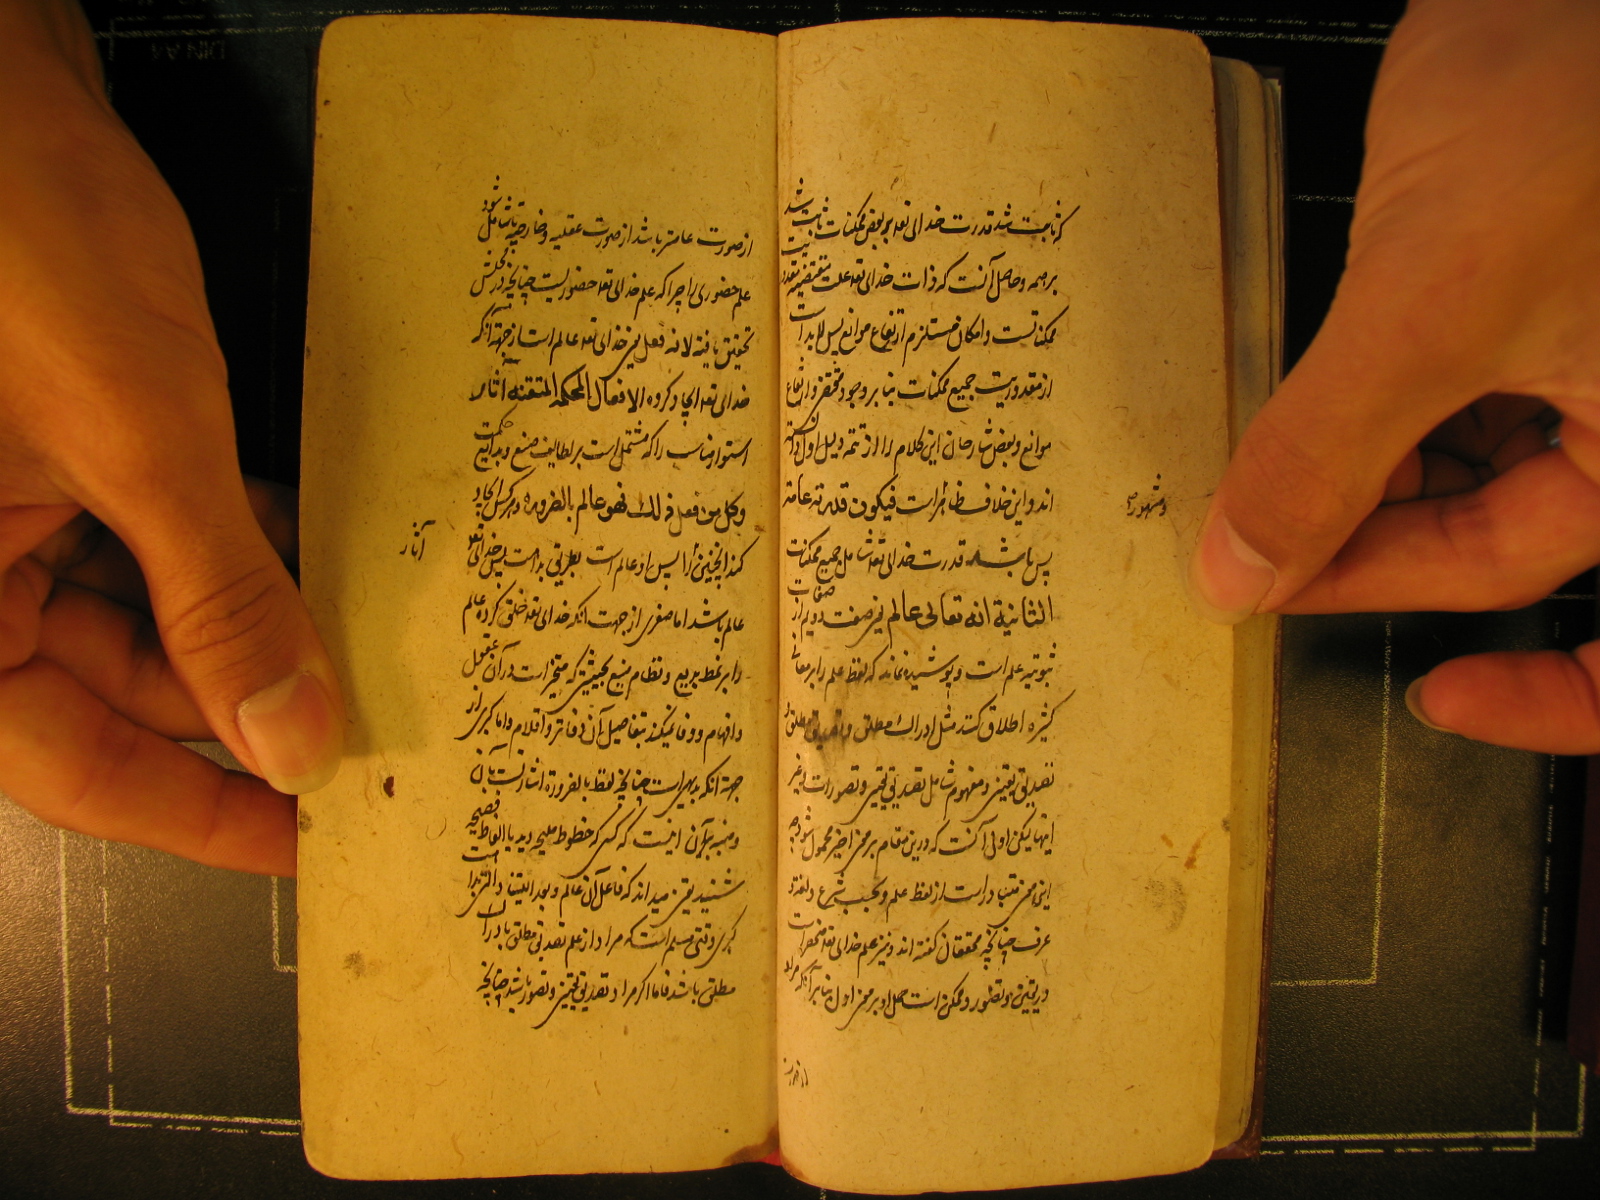 که ثابت شد قدرت خدای تعه بر بعض ممکنات ثابت شد
بر همه و حاصل آنست که ذات خدای تعه علت مقتضیه مقدوریت
ممکناتست و امکان مستلزم ارتفاع موانع پس لابد است
از مقدوریت جمیع ممکنات بنا بر وجود مقتضی و ارتفاع
موانع و بعض شارحان این کلام را از تتمه دلیل اول داشته
اند و این خلاف ظاهر است فیکون قدرته عامة
پس باشد قدرت خدای تعه شامل جمیع ممکنات
الثانیة انه تعالی عالم یعنی صفت دویم از صفات
ثبوتیه علم است و پوشیده نماند که لفظ علم را بر معانی
کثیره اطلاق کنند مثل ادراک مطلق و تصدیق مطلق و
تصدیق یقینی و مفهوم شامل تصدیق یقینی و تصورات و غیر
اینها لیکن اولی آنست که درین مقام بر معنی اخیر محمول شود چه
این معنی متبادر است از لفظ علم بحسب شرع و لغة و
عرف چنانچه محققان گفته اند و نیز علم خدای تعه منحصر است
در یقین و تصور و ممکن است حمل او بر معنی اول بنا بر آنکه مراد
از صورت
از صورت عامتر باشد از صورت عقلیه و خارجیه تا شامل شود
علم حضوری را چرا که علم خدای تعه حضوریست چنانچه در محلش
تحقیق یافته لانه فعل یعنی خدای تعه عالم است از جهة آنکه
خدای تعه ایجاد کرده الافعال المحکمة المتقنة آثار
استوار مناسب را که مشتمل است بر لطایف صنع و بدایع حکمت
وکل من فعل ذلک فهو عالم بالضروره و هر کس ایجاد
کند اینچنین را پس او عالم است بطریق بداهت پس خدای تعه
عالم باشد اما صغری از جهت آنکه خدای تعه خلق کرده عالم
را بر نمط بدیع و نظام منیع بحیثیتی که متحیر است در آن عقول
و افهام و وفا نمیکند بتفاصیل آن دفاتر و اقلام و اما کبری از
جهة آنکه بدیهی است چنانچه لفظ بالضرورة اشارتست بآن
و منبه بر آن اینست که کسی که خطوط ملیحه دید یا الفاظ فصیحه
شنید یقین میداند که فاعل آن عالم بوده البته
کبری وقتی مسلم است که مراد از علم تصدیق مطلق یا ادراک
مطلق باشد فاما اکر مراد تصدیق یقینی و تصور باشد چنانچه
آثار